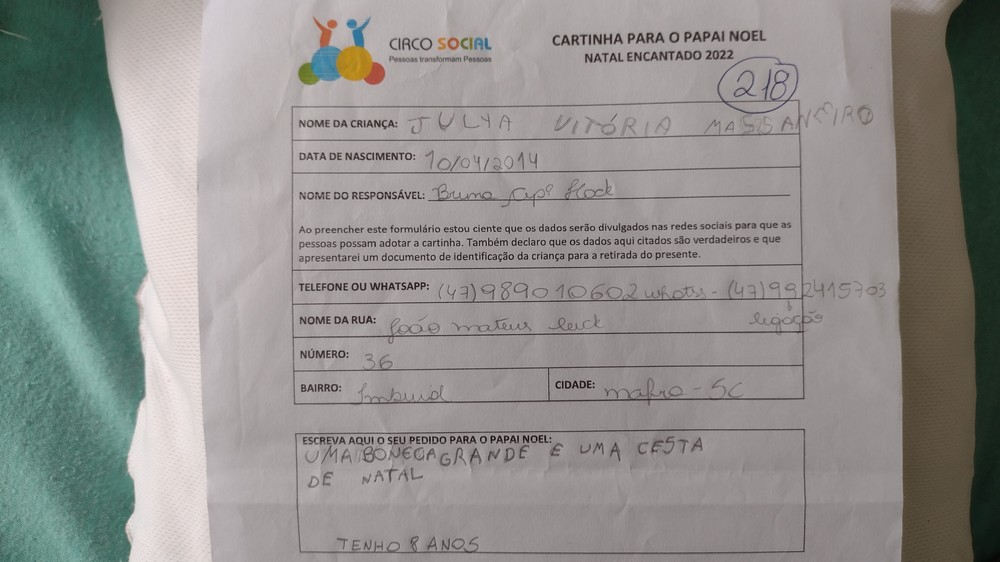 CIRCO SOCIAL
Pessoas transformam Pessoas
CARTINHA PARA O PAPAI NOEL
NATAL ENCANTADO 2022
218
NOME DA CRIANÇA: JULYA VITÓRIA MASSANEIRO
DATA DE NASCIMENTO: 10/04/2014
NOME DO RESPONSÁVEL: Bruna
Ao preencher este formulário estou ciente que os dados serão divulgados nas redes sociais para que as
pessoas possam adotar a cartinha. Também declaro que os dados aqui citados são verdadeiros e que
apresentarei um documento de identificação da criança para a retirada do presente.
TELEFONE OU WHATSAPP: (47)989010602 whats - (47)992415703
ligação
NOME DA RUA: João mateus
NÚMERO: 36
BAIRRO:
CIDADE: mafra - SC
ESCREVA AQUI O SEU PEDIDO PARA O PAPAI NOEL:
UMA BONECA GRANDE E UMA CESTA
DE NATAL
TENHO 8 ANOS